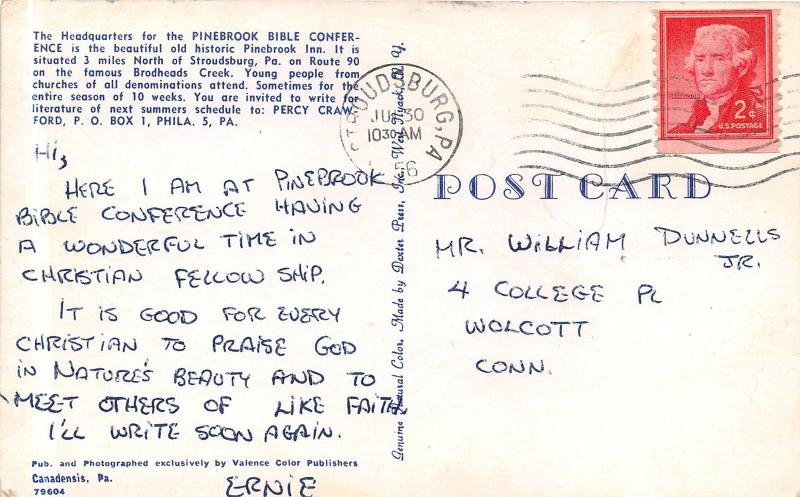 The Headquarters for the PINEBROOK BIBLE CONFER-
ENCE is the beautiful old historic Pinebrook Inn. It is
situated 3 miles North of Stroudsburg, Pa. on Route 90
on the famous Brodheads Creek. Young people from
churches of all denominations attend. Sometimes for the
entire season of 10 weeks. You are invited to write for
literature of next summers schedule to: PERCY CRAW-
FORD, P. O. BOX 1, PHILA. 5, PA.
Hi,
HERE I AM AT PINEBROOK
BIBLE CONFERENCE HAVING
A WONDERFUL TIME IN
CHRISTIAN FELLOWSHIP.
IT IS GOOD FOR EVERY
CHRISTIAN TO PRAISE GOD
IN NATURE'S BEAUTY AND TO
MEET OTHERS OF LIKE FAITH.
I'LL WRITE SOON AGAIN.
ERNIE
Pub. and Photographed exclusively by Valence Color Publishers
Canadensis, Pa.
79604
Genuine Natural Color, Made by Dexter Press, Inc., West Nyack, N. Y.
STROUDSBURG, PA
30
10 30 AM
56
2¢
U.S. POSTAGE
POST CARD
MR. WILLIAM DUNNELLS
JR.
4 COLLEGE PL
WOLCOTT
CONN.